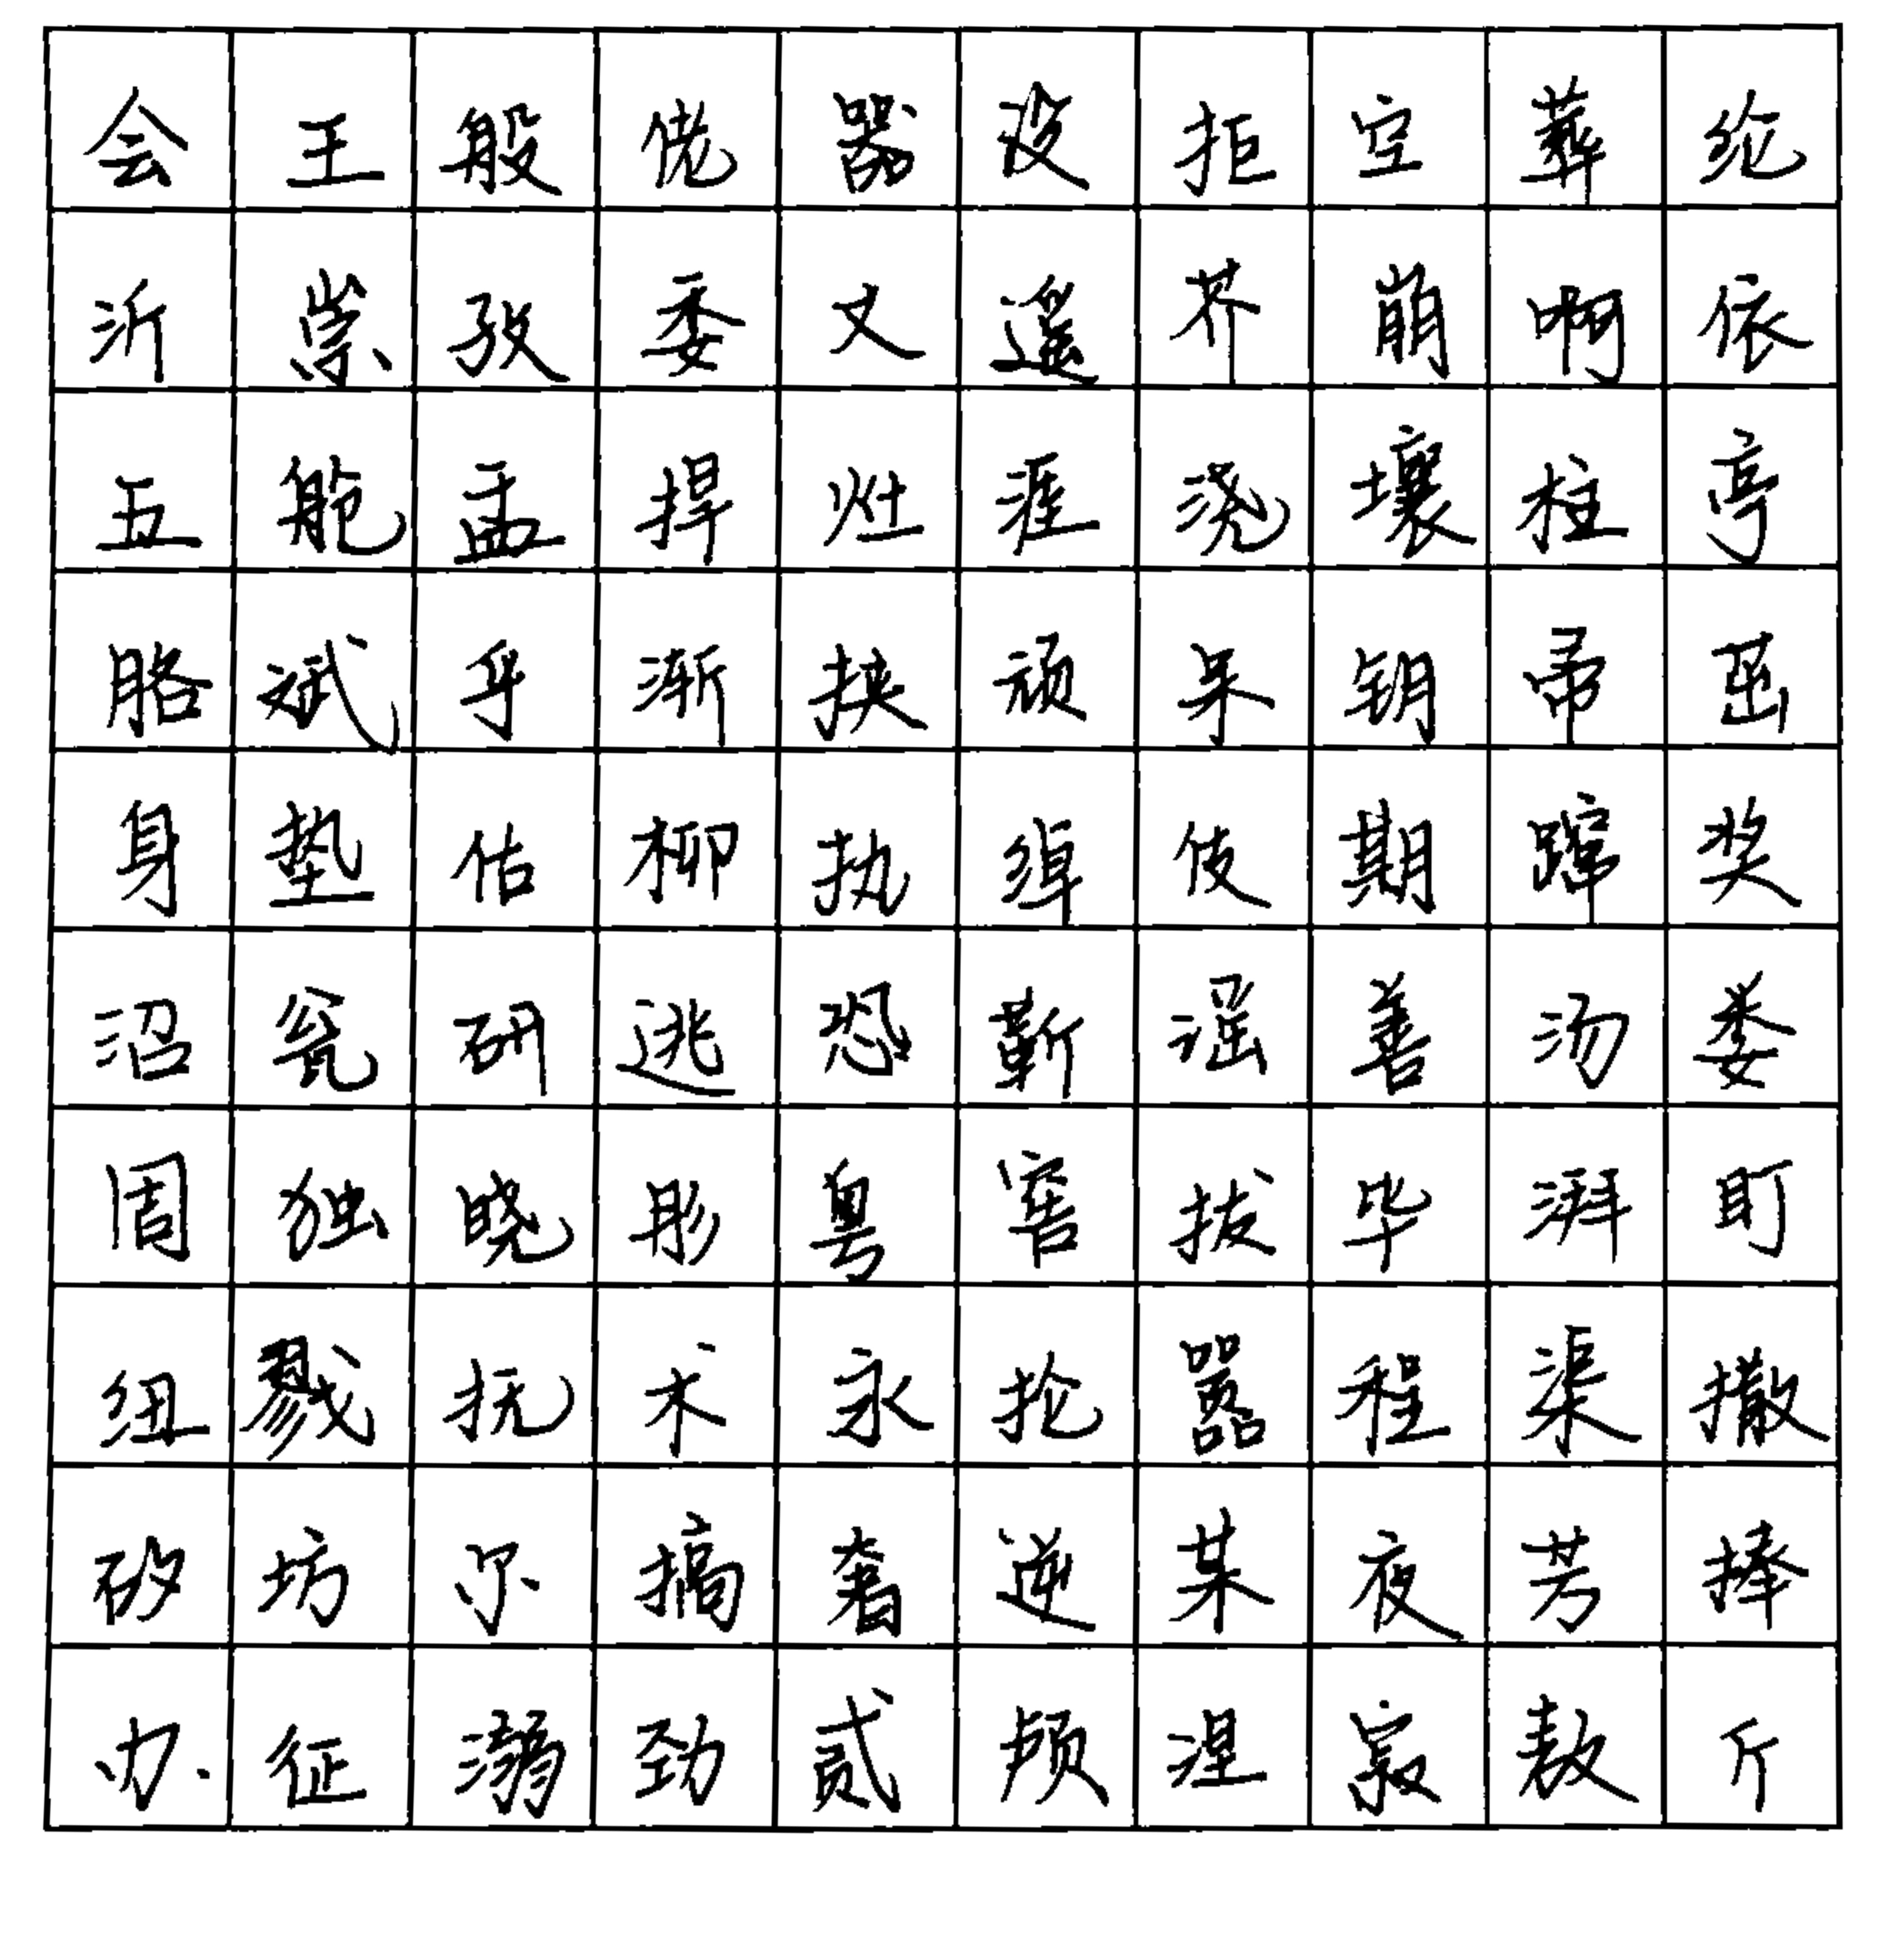 会王般佬器设拒空葬纶
沂祟孜委又遥芥崩啊依
五舵盂捍灶涯浇壤柱亭
胳斌乎渐挟顽呆钥帚茁
身垫估柳执绰伎期蹿奖
沼瓮研逃恐靳谣善汤娄
周独晓彤粤窖拔毕湃盯
纽戮抚术永抡嚣程渠撒
矽坊尔搞奢逆某夜芳捧
办征溺劲贰顿涅寂敖斤